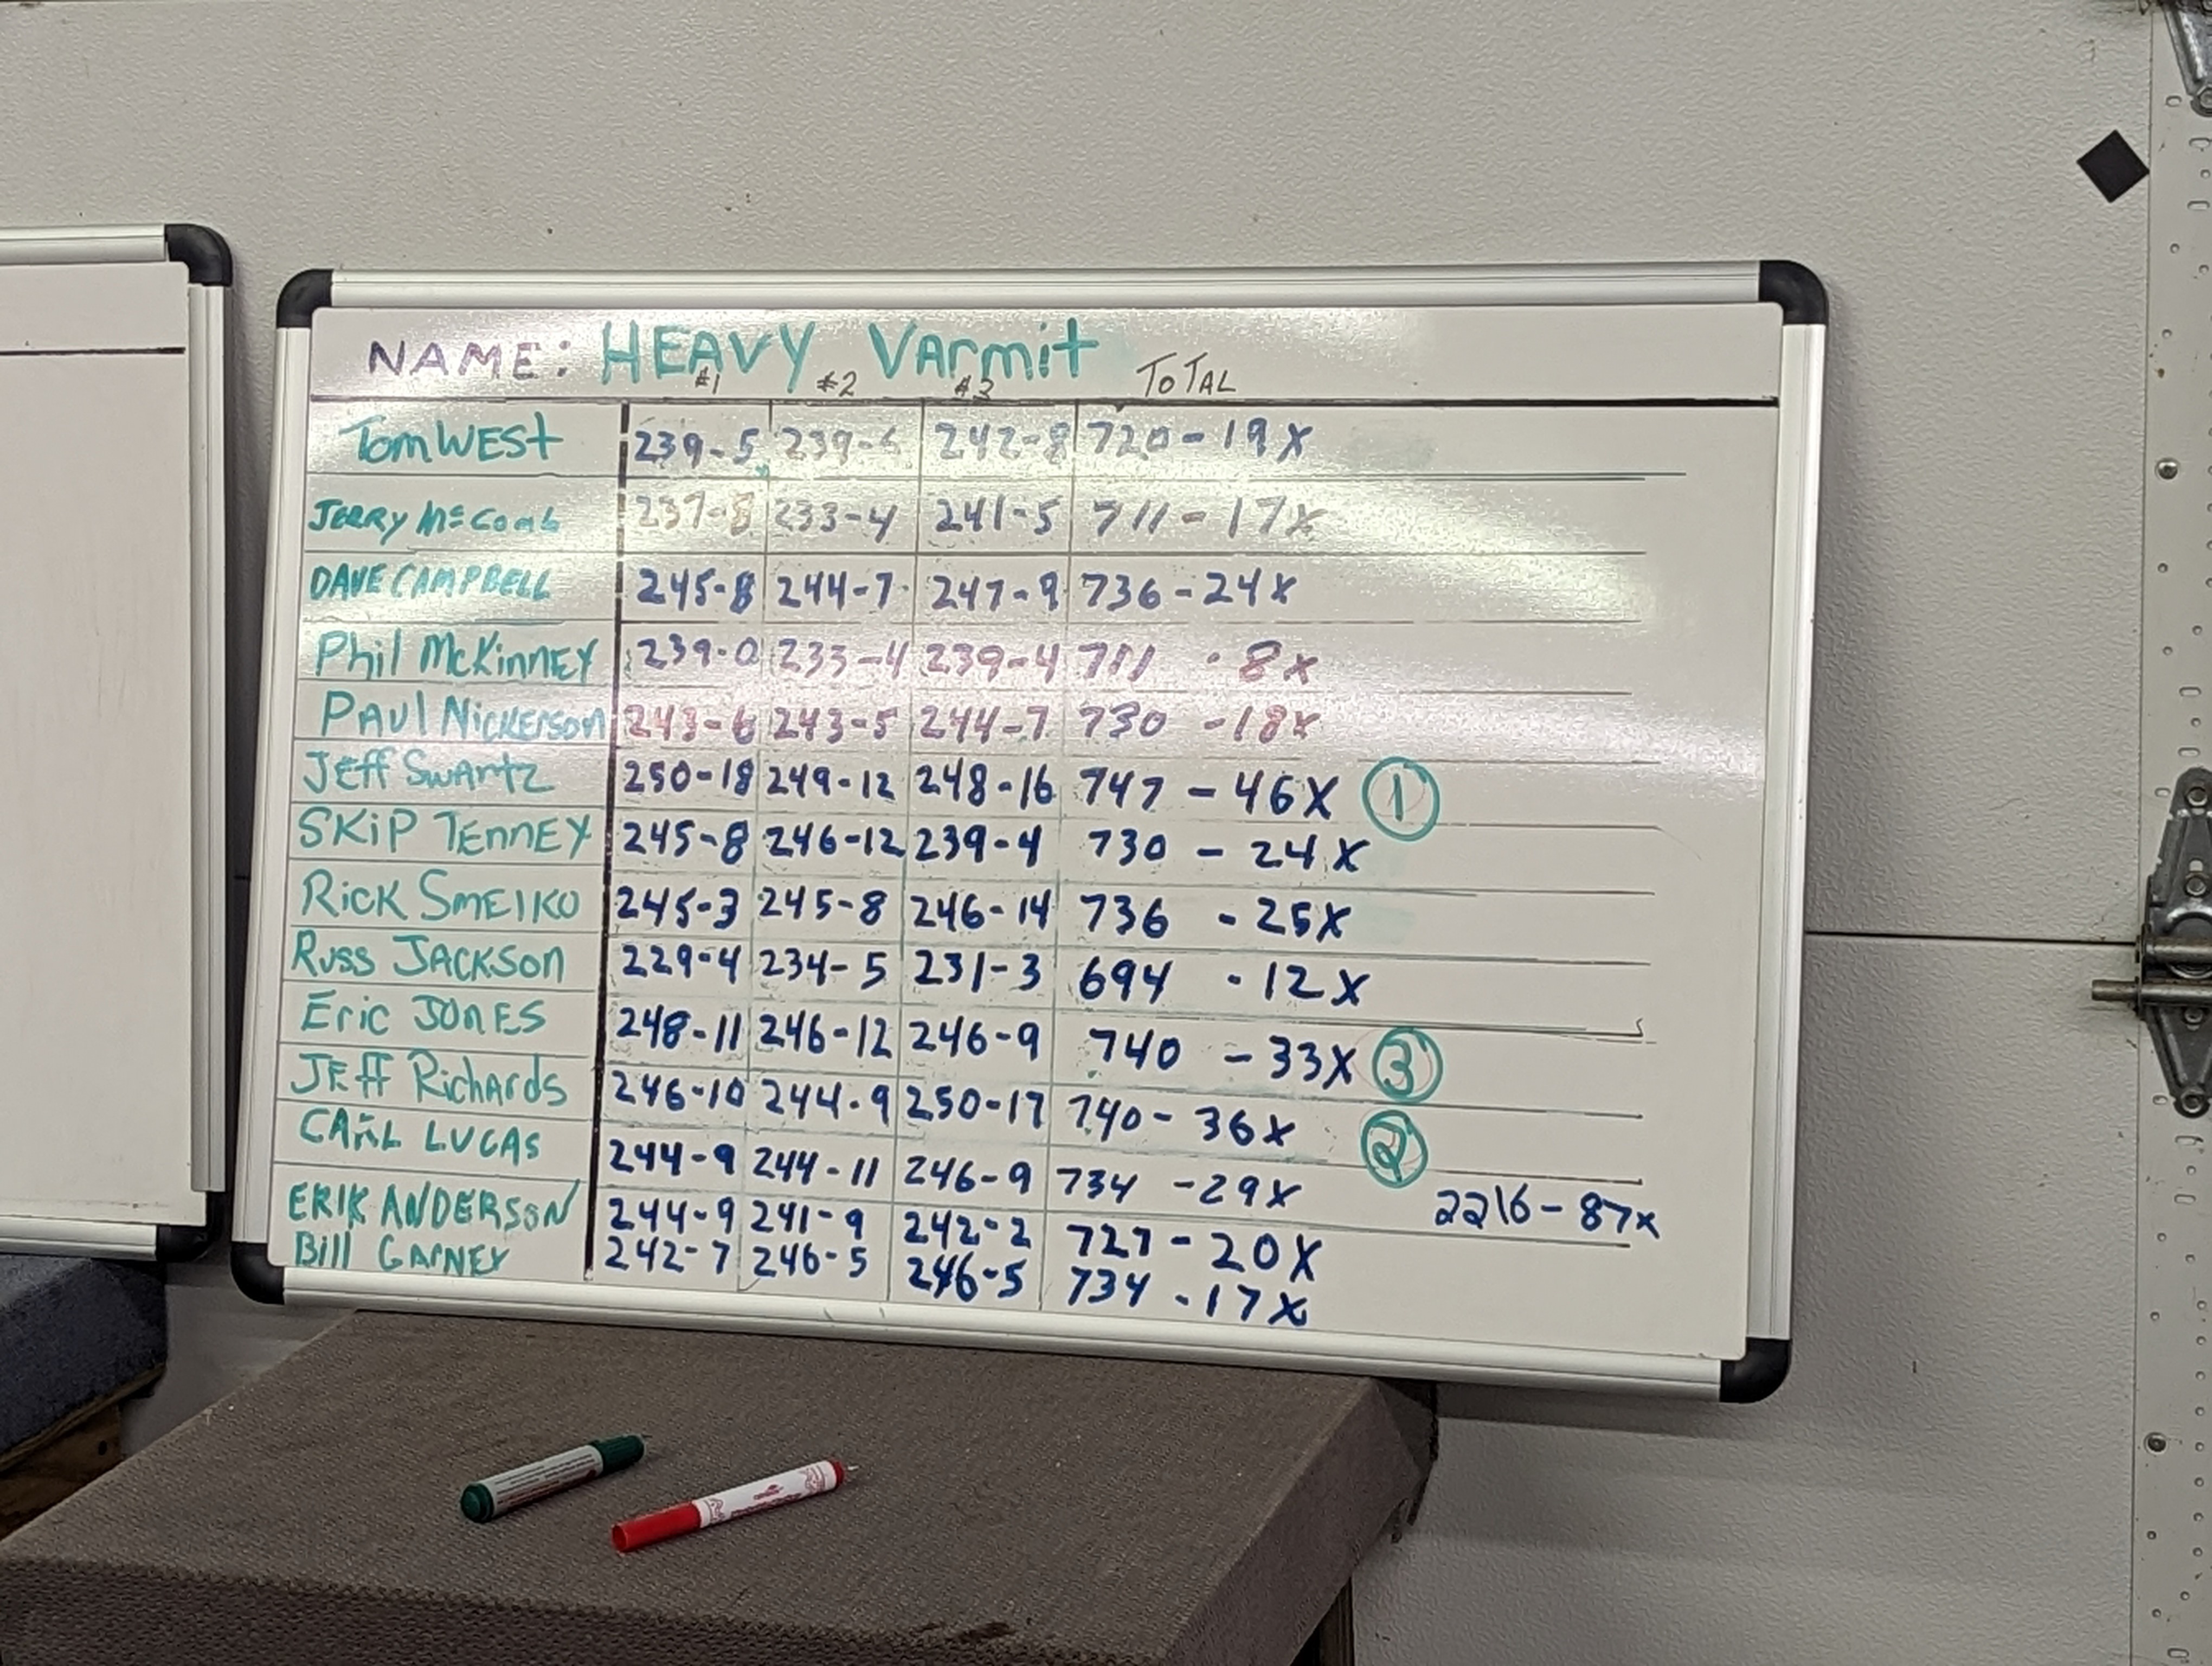 NAME: HEAVY Varmit
#1 #2 #3 TOTAL
Tom WEST 239-5 239-6 242-8 720-19X
JERRY McComb 237-8 233-4 241-5 711-17X
DAVE CAMPBELL 245-8 244-7 247-9 736-24X
Phil McKinnEY 239-0 233-4 239-4 711 - 8X
PAUL NICKERSON 243-6 243-5 244-7 730 -18X
Jeff Swartz 250-18 249-12 248-16 747 - 46X 1
SKiP TEnnEY 245-8 246-12 239-4 730 - 24X
Rick SmEIKO 245-3 245-8 246-14 736 - 25X
Russ JACKSON 229-4 234-5 231-3 694 - 12X
Eric JONES 248-11 246-12 246-9 740 - 33X 3
JEff Richards 246-10 244-9 250-17 740 - 36X 2
CARL LUCAS 244-9 244-11 246-9 734 - 29X
2216 - 87X
ERIK ANDERSON 244-9 241-9 242-2 727 - 20X
Bill GARNEY 242-7 246-5 246-5 734 - 17X